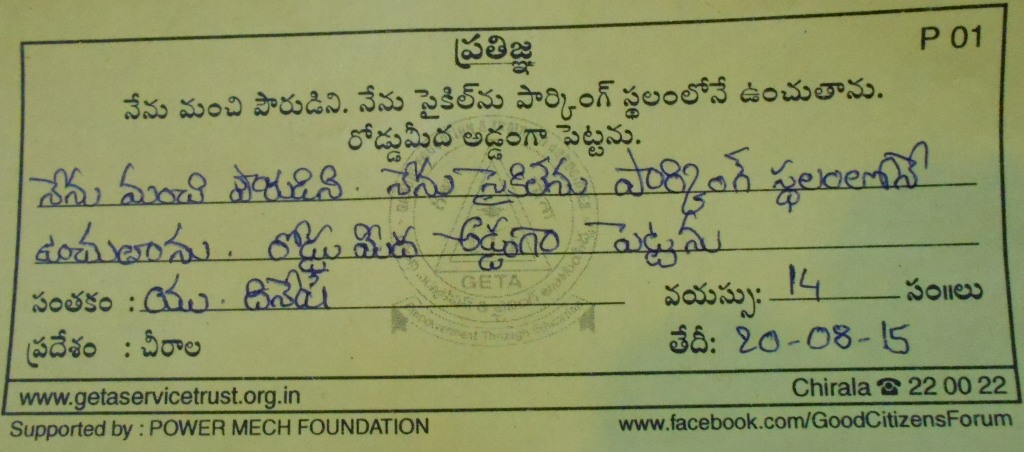 P 01
ప్రతిజ్ఞ
నేను మంచి పౌరుడిని. నేను సైకిల్‌ను పార్కింగ్ స్థలంలోనే ఉంచుతాను.
రోడ్డుమీద అడ్డంగా పెట్టను.
నేను మంచి పౌరుడిని. నేను సైకిలేను పార్కింగ్ స్థలంలోనే
ఉంచుతాను. రోడ్డు మీద అడ్డంగా పెట్టను
GETA
సంతకం : యు. దినేష్ వయస్సు: 14 సం॥లు
Empowerment Through Education
ప్రదేశం : చీరాల తేదీ: 20-08-15
www.getaservicetrust.org.in Chirala ☎ 22 00 22
Supported by : POWER MECH FOUNDATION www.facebook.com/GoodCitizensForum